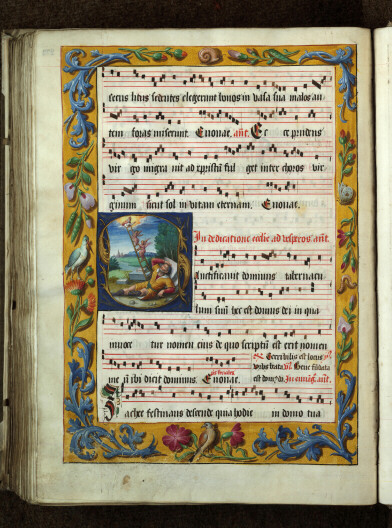 secus litus sedentes elegerunt bonos in vasa sua malos au
tem foras miserunt. Euouae. añt. Ec ce prudens
vir go migra uit ad xpristū ful get inter choros vir
ginum sicut sol in virtute
In dedicatione ecclie ad vesperos añt.
Sanctificauit dominus tabernacu
lum suū hec est domus dei in qua
inuoce tur nomen eius de quo scriptū est erit nomen
Terribilis est locus
me ū ibi dicit dominus. Euouae.
est domus In euāg. añt.
achee festinans descende quia hodie in domo tua